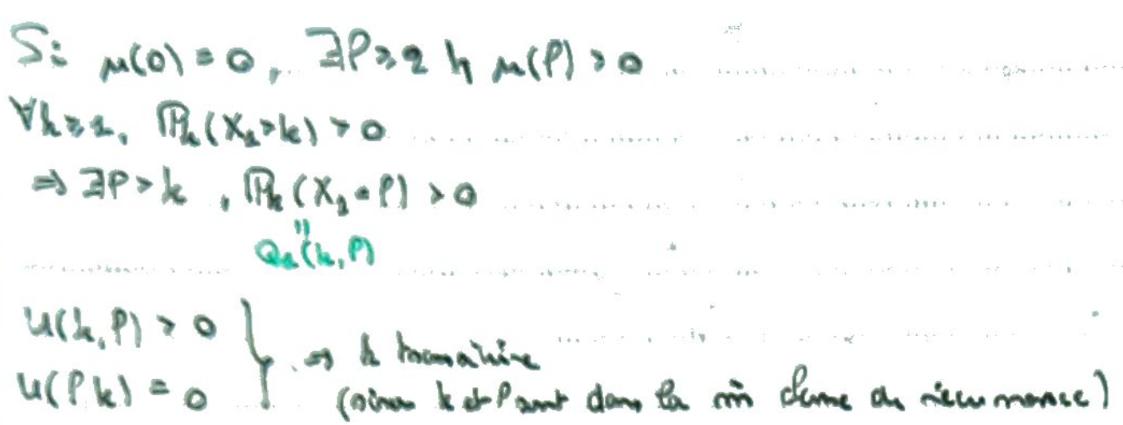 Si μ(0) = 0, ∃l ≥ 2 tq μ(l) > 0
∀k ≥ 1, ℙₖ(X₁ > k) > 0
⇒ ∃l > k, ℙₖ(X₁ = l) > 0
"
Q₁(k, l)
U(k, l) > 0
U(l, k) = 0
} ⇒ k transitoire
(sinon k et l sont dans la m̂ classe de récurrence)